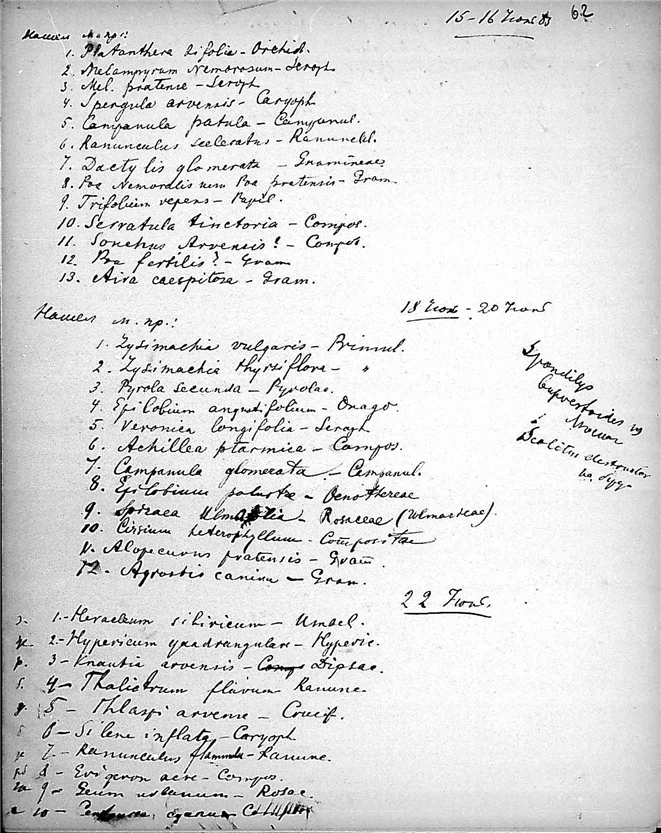 15-16 Іюня 83 62
м. пр.:
1. Platanthera bifolia - Orchid.
2. Melampyrum Nemorosum - Scroph
3. Mel. pratense - Scroph
4. Spergula arvensis - Caryoph
5. Campanula patula - Campanul.
6. Ranunculus sceleratus - Ranuncul.
7. Dactylis glomerata - Gramineae
8. Poa Nemoralis Poa pratensis - Gram.
9. Trifolium repens - Papil.
10. Serratula tinctoria - Compos.
11. Sonchus Arvensis? - Compos.
12. Poa fertilis? - Gram
13. Aira caespitosa - Gram.
18 - 20 Іюня
м. пр.:
1. Lysimachia vulgaris - Primul.
2. Lysimachia thyrsiflora - "
3. Pyrola secunda - Pyrolac.
4. Epilobium angustifolium - Onagr.
5. Veronica longifolia - Scroph
6. Achillea ptarmica - Compos.
7. Campanula glomerata - Campanul.
8. Epilobium palustre - Oenothereae
9. Spiraea Ulmaria - Rosaceae (Ulmariae).
10. Cirsium heterophyllum - Compositae
11. Alopecurus pratensis - Gram.
12. Agrostis canina - Gram.
Spondilys
buprestoides
Scolitus destructor
22 Іюня.
1. - Heracleum sibiricum - Umbel.
2. - Hypericum quadrangulare - Hyperic.
3 - Knautia arvensis - Dipsac.
4 - Thalictrum flavum - Ranunc.
5 - Thlaspi arvense - Crucif.
6 - Silene inflata - Caryoph
7. - Ranunculus flammula - Ranunc.
8 - Erigeron acre - Compos.
9 - Geum urbanum - Rosac.
10 - Centaurea cyanus